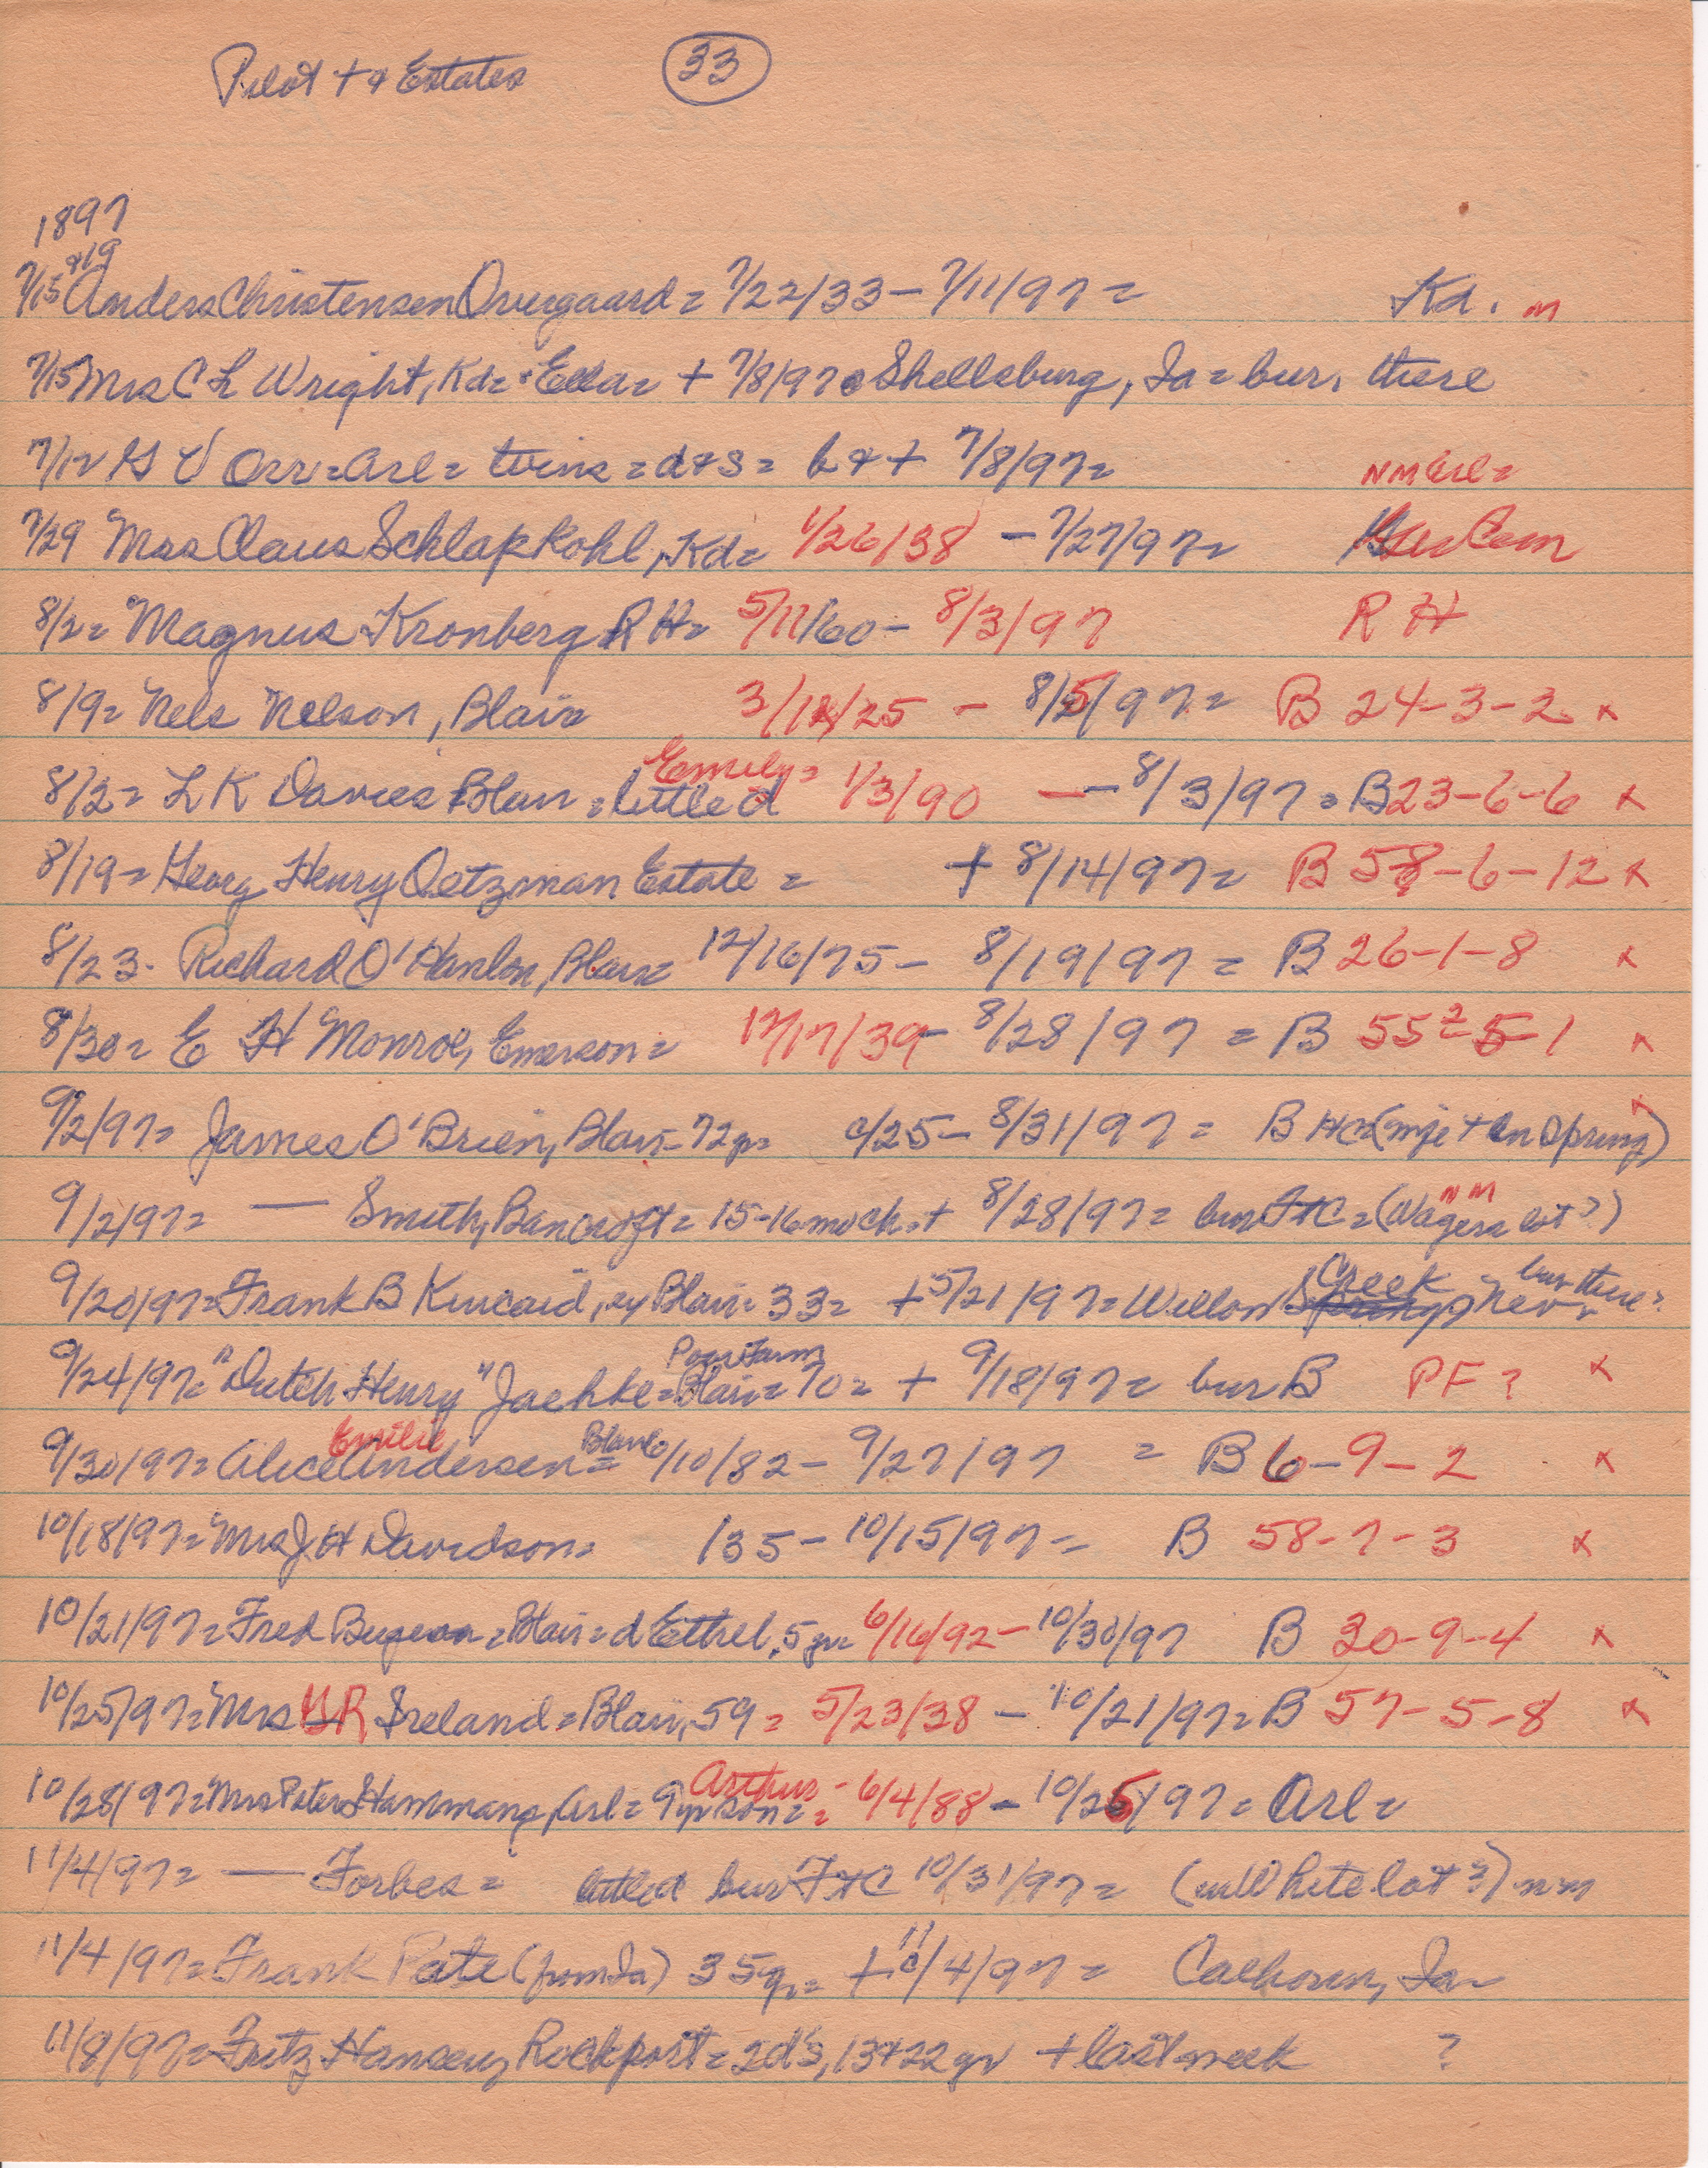 Pilot + & Estates (33)
1897
7/15 &19 Anders Christensen Overgaard = 7/22/33 - 7/11/97 = Kd. M
7/15 Mrs C L Wright, Kd = Ella = + 7/8/97 @ Shellsburg, Ia = bur. there
7/12 G V Orr = Arl = twins = d & s = b & + 7/8/97 = NM Arl =
7/29 Mrs Claus Schlapkohl, Kd = 1/26/38 - 7/27/97 = Com
8/2 = Magnus Kronberg RH = 5/11/60 - 8/3/97 RH
8/9 = Nels Nelson, Blair 3/12/25 - 8/5/97 = B 24-3-2 x
8/2 = L K Davies Blair = little d Emily = 1/3/90 - 8/3/97 = B 23-6-6 x
8/19 = Georg Henry Oetzman Estate = + 8/14/97 = B 58-6-12 x
8/23 - Richard O'Hanlon, Blair = 12/16/75 - 8/19/97 = B 26-1-8 x
8/30 = E H Monroe, Emerson = 12/17/39 - 8/28/97 = B 55-2-5-1 x
9/2/97 = James O'Brien, Blair - 72 yr = c/25 - 8/31/97 = B HC = (mje + in Spring) x
9/2/97 = — Smith, Bancroft = 15-16 mo ch. + 8/28/97 = bur FtC = (Wagers lot ?) NM
9/20/97 = Frank B Kincaid, ey Blair = 33 = + 5/21/97 = Willow Creek, Nev = bur there?
9/24/97 = "Dutch Henry" Jaehke = Poor Farm Blair = 70 = + 9/18/97 = bur B PF ? x
9/30/97 = Alice Emilie Andersen = Blair 6/10/82 - 9/27/97 = B 6-9-2 x
10/18/97 = Mrs J H Davidson = /35 - 10/15/97 = B 58-7-3 x
10/21/97 = Fred = Blair = d Ethel, 5 yr = 6/16/92 - 10/30/97 B 30-9-4 x
10/25/97 = Mrs R Ireland = Blair, 59 = 5/23/38 - 10/21/97 = B 57-5-8 x
10/28/97 = Mrs Peter Hammang, Arl = 9 yr son = Arthur = 6/4/88 - 10/25/97 = Arl =
11/4/97 = — Forbes = little d bur FtC 10/31/97 = (in White lot ?) nm
11/4/97 = Frank Pate (from Ia) 35 yr = + 11/4/97 = Calhoun, Ia =
11/8/97 = Fritz Hansen, Rockport = 2 d's, 13 & 22 yr + last week ?